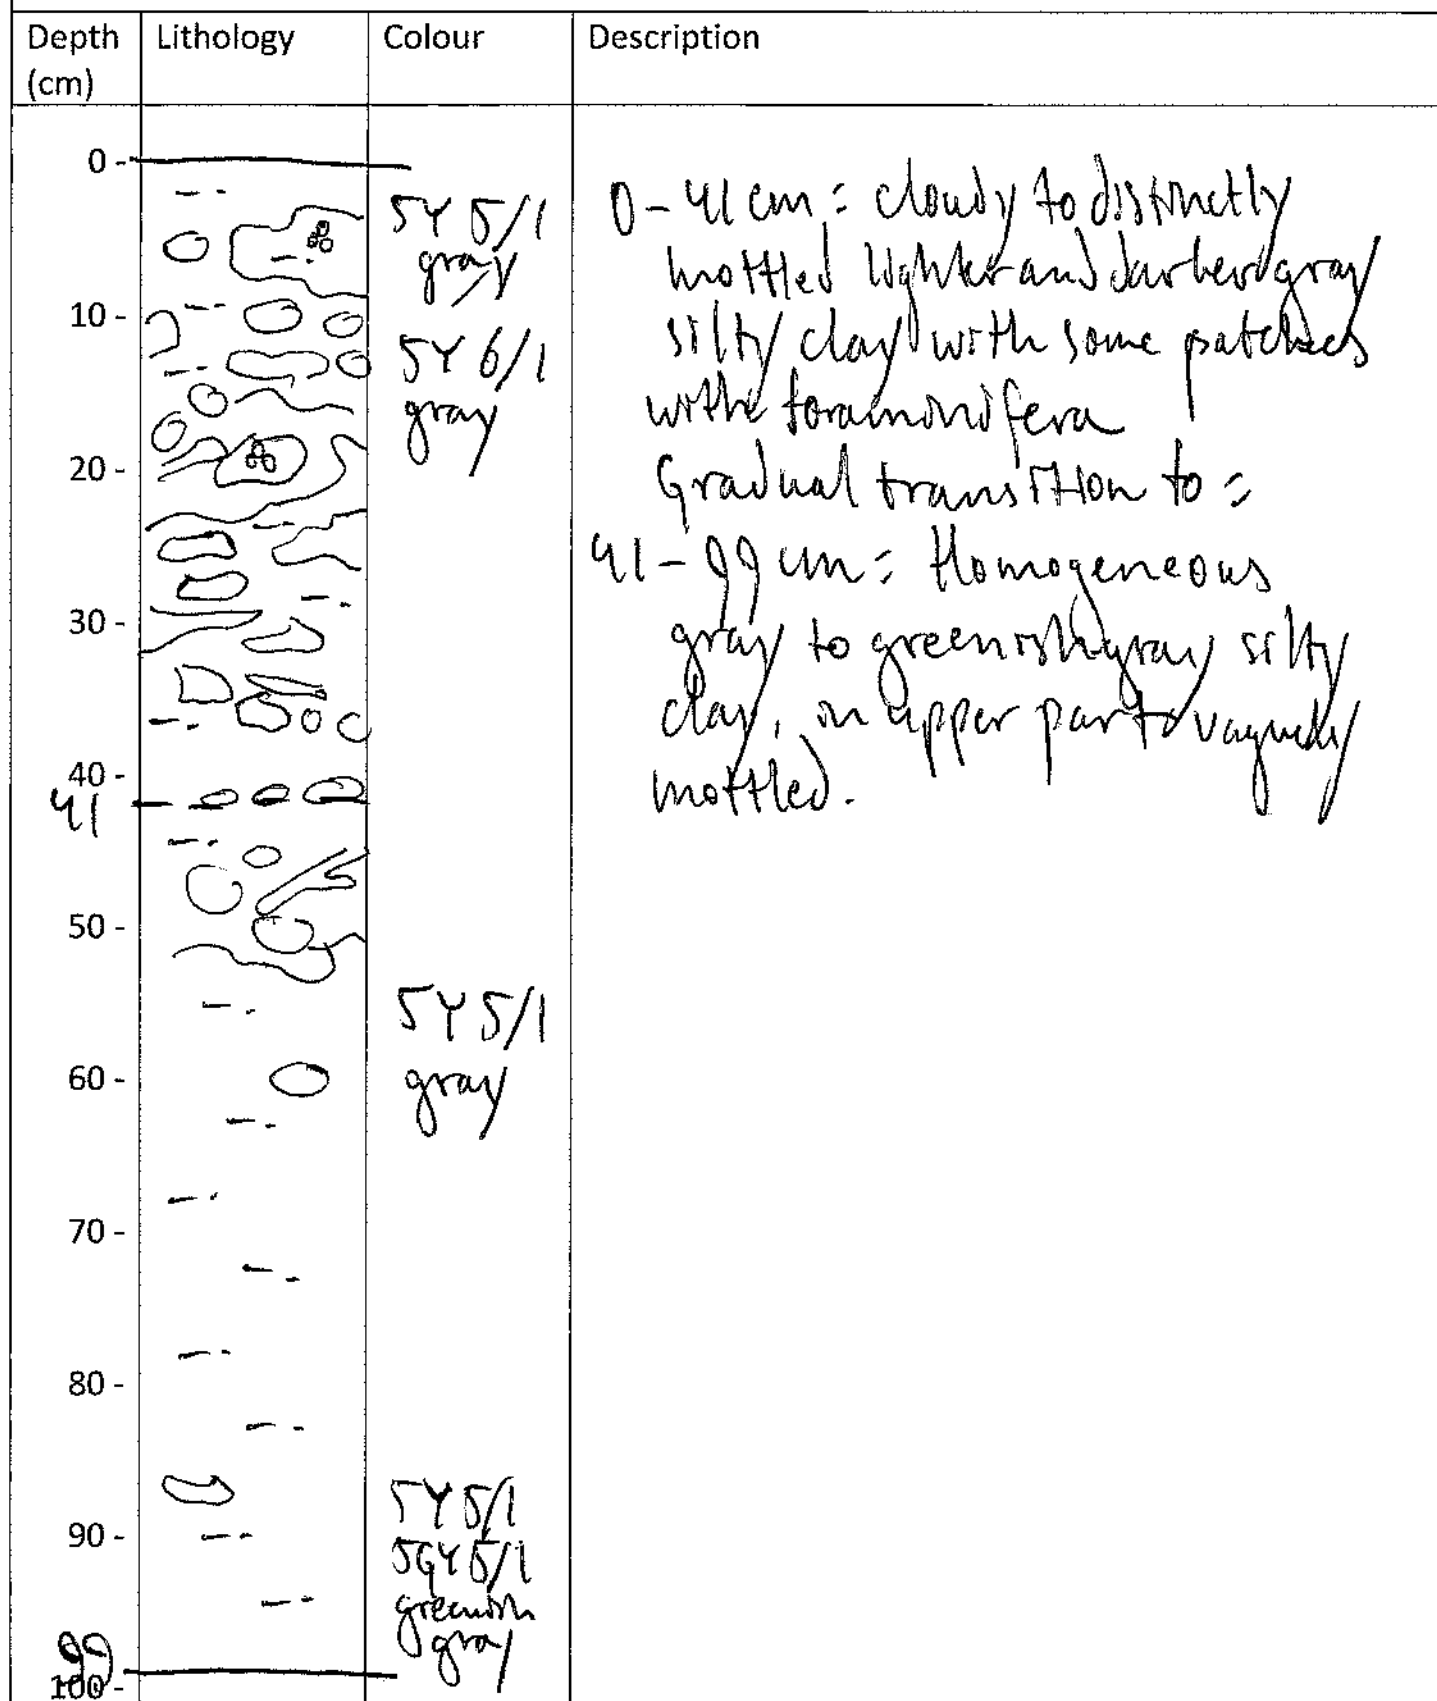 Depth (cm)
Lithology
Colour
Description
0 -
10 -
20 -
30 -
40 -
41
50 -
60 -
70 -
80 -
90 -
99
100 -
5Y 5/1
gray
5Y 6/1
gray
5Y 5/1
gray
5Y 5/1
5GY 5/1
greenish
gray
0-41 cm: cloudy to distinctly
mottled lighter and darker gray
silty clay with some patches
with foraminifera
Gradual transition to:
41-99 cm: Homogeneous
gray to greenish gray silty
clay, in upper part vaguely
mottled.